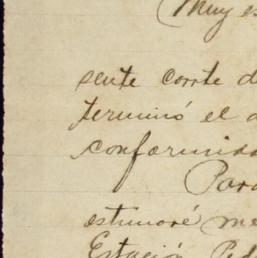 (Muy es
sente corte d
terminó el d
conformida
Para
estimaré me
Estación Ped